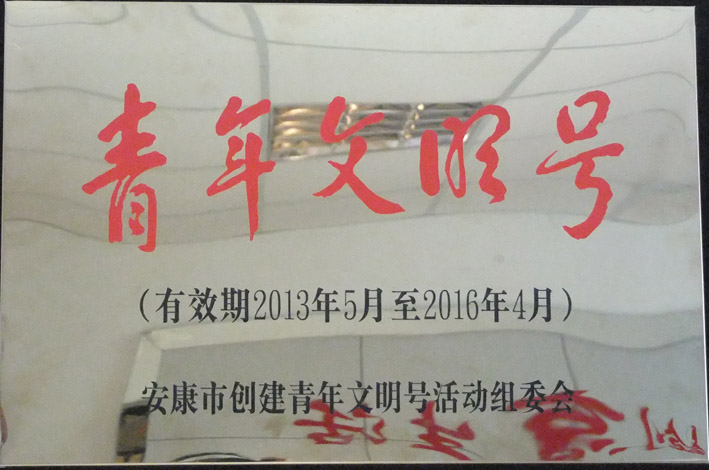 青年文明号
（有效期2013年5月至2016年4月）
安康市创建青年文明号活动组委会